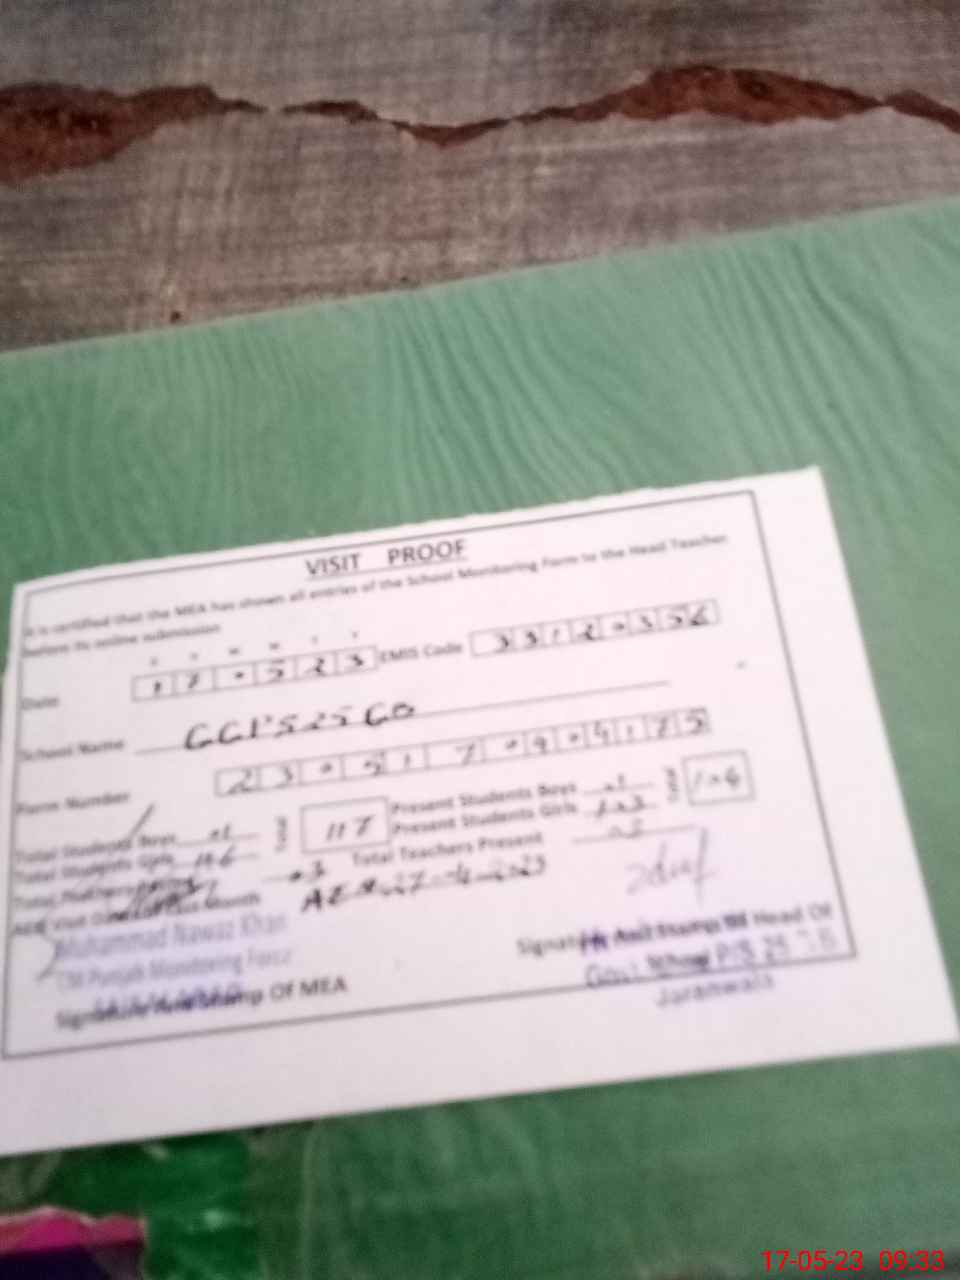 VISIT PROOF
It is certified that the MEA has shown all entries of the School Monitoring Form to the Head Teacher
before its online submission
D D M M Y Y
Date 170523 EMIS Code 33120356
School Name GGPS 25 GB
Form Number 230517 0904175
Total Students Boys 01 117 Present Students Boys 01 104
Total Students Girls 116 Present Students Girls 103
03 Total Teachers Present
Muhammad Nawaz Khan
CM Punjab Monitoring Force
Signature And Stamp Of MEA
Signature And Stamp Of Head Of
School
Jaranwala
17-05-23 09:33